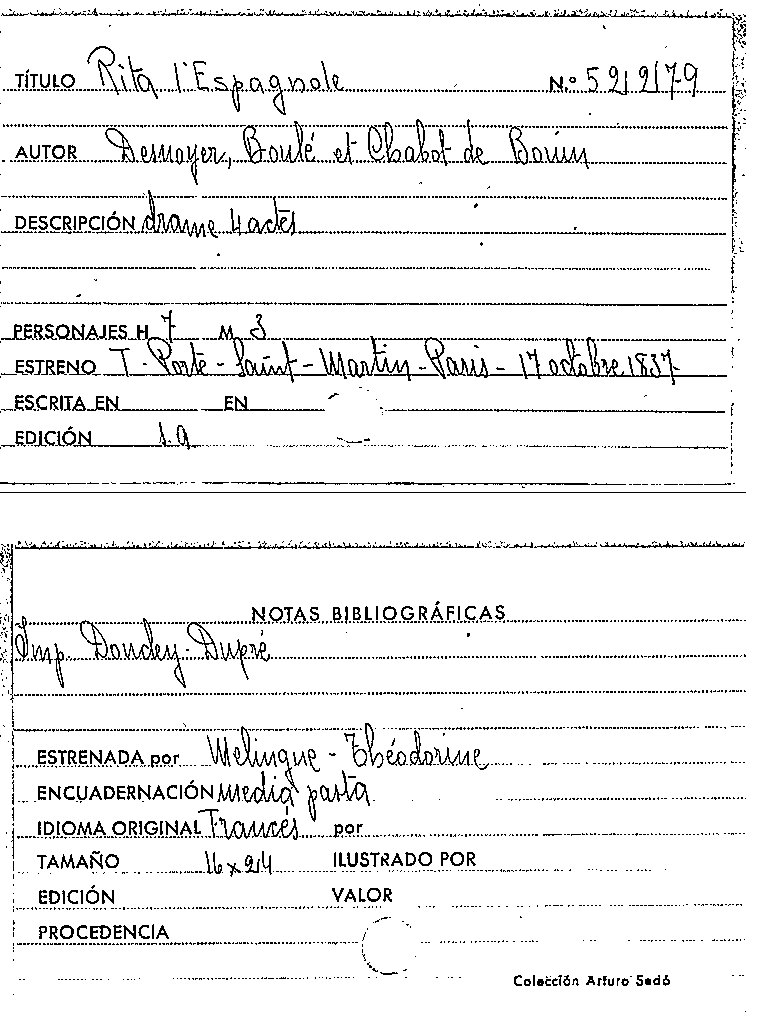 TÍTULO Rita l'Espagnole N.º 52217-9
AUTOR Desnoyer, Boulé et Chabot de Bouin
DESCRIPCIÓN drame 4 actes
PERSONAJES H 7 M 3
ESTRENO T - Porte - Saint - Martin - Paris - 17 octobre 1837
ESCRITA EN EN
EDICIÓN s.a
NOTAS BIBLIOGRÁFICAS
Imp. Dondey-Dupré
ESTRENADA por Melingue - Théodorine
ENCUADERNACIÓN media pasta
IDIOMA ORIGINAL Francés por
TAMAÑO 16x24 ILUSTRADO POR
EDICIÓN VALOR
PROCEDENCIA
Colección Arturo Sedó